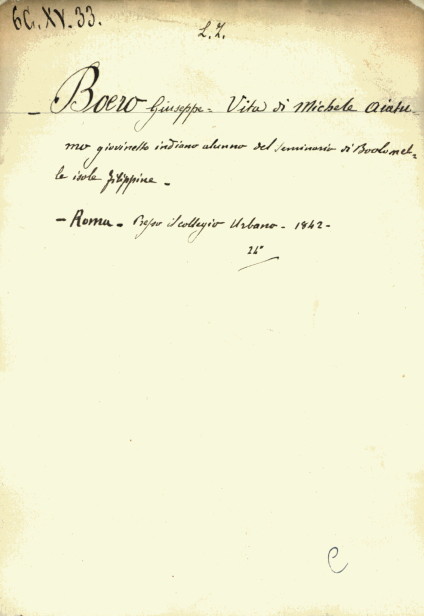 6C.XV.33.
L.Z.
- Boero Giuseppe - Vita di Michele Aiatu-
mo giovinetto indiano alunno del seminario di Boolo nel-
le isole Filippine -
- Roma - Presso il collegio Urbano - 1842 -
24°
C